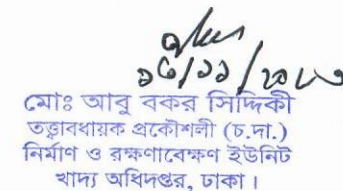 মোঃ আবু বকর সিদ্দিকী
তত্ত্বাবধায়ক প্রকৌশলী (চ.দা.)
নির্মাণ ও রক্ষণাবেক্ষণ ইউনিট
খাদ্য অধিদপ্তর, ঢাকা।